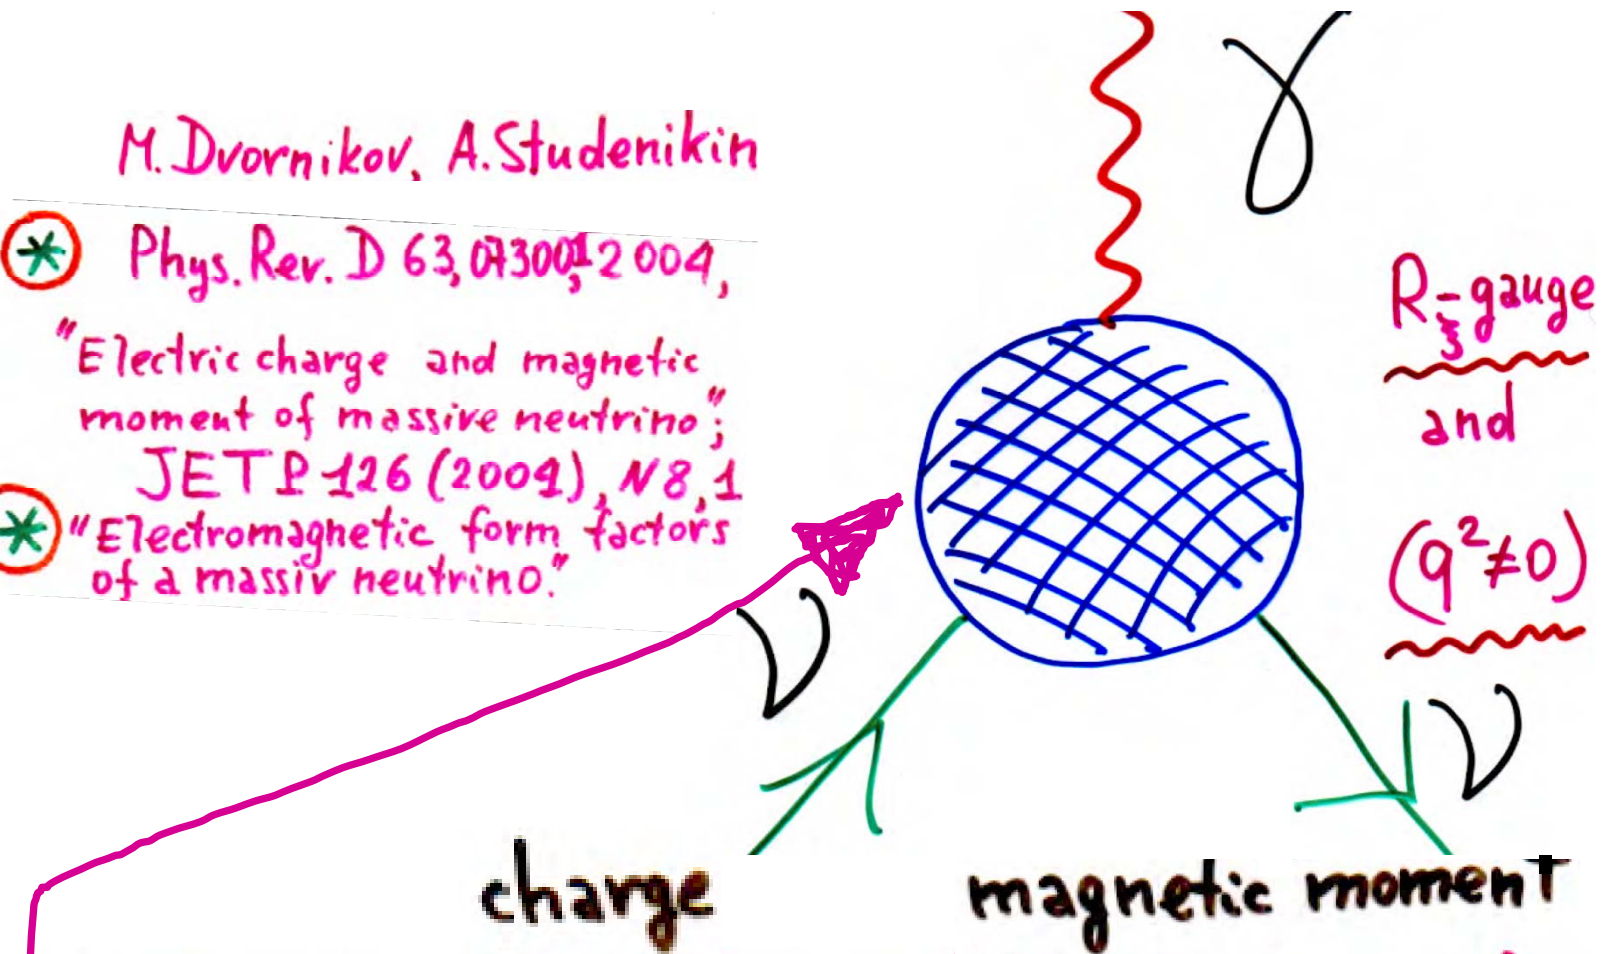 M. Dvornikov, A. Studenikin
* Phys. Rev. D 63, 073001, 2004,
"Electric charge and magnetic
moment of massive neutrino";
JETP 126 (2004), N8, 1
* "Electromagnetic form factors
of a massiv neutrino."
γ
R_ξ-gauge
and
(q²≠0)
ν
ν
charge
magnetic moment